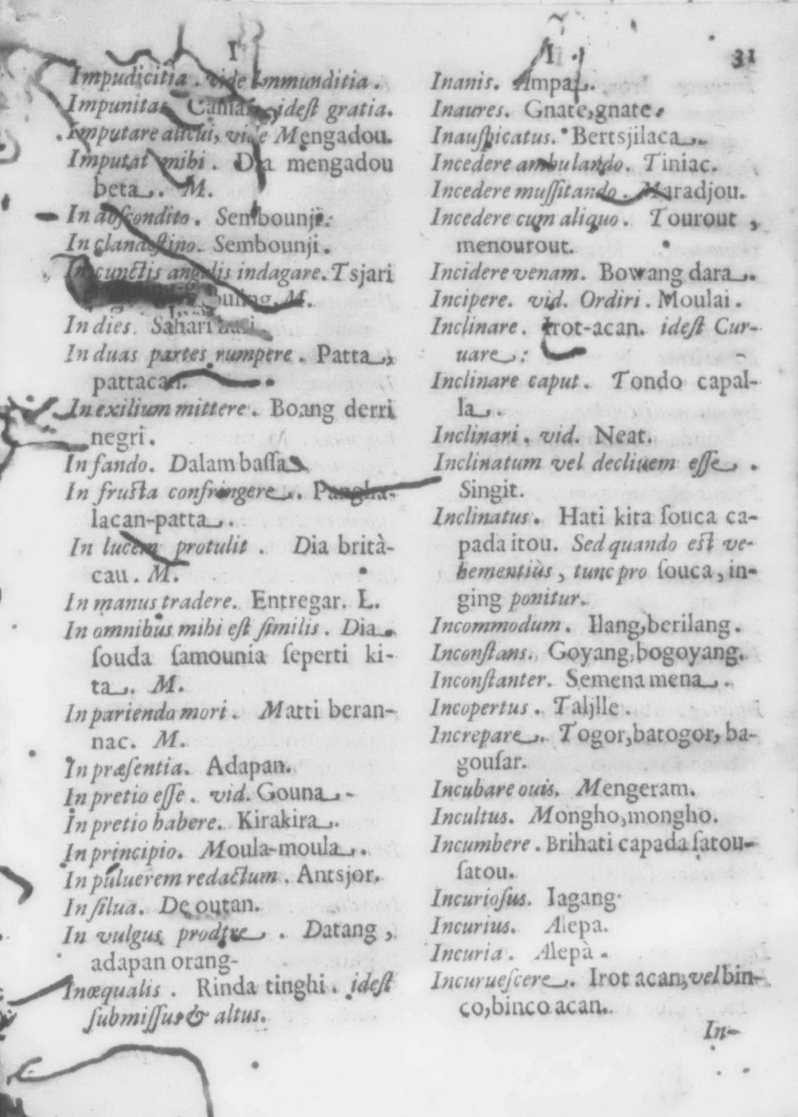 I
Impudicitia. vide Immunditia.
Impunitas. idest gratia.
Imputare alicui, vide Mengadou.
Imputat mihi. Dia mengadou
beta. M.
In abscondito. Sembounji.
In clandestino. Sembounji.
In cunctis angulis indagare. Tsjari
M.
In dies. Sahari
In duas partes rumpere. Patta,
pattacan.
In exilium mittere. Boang derri
negri.
Infando. Dalam bassa
In frusta confringere. Pangha-
lacan-patta.
In lucem protulit. Dia brità-
cau. M.
In manus tradere. Entregar. L.
In omnibus mihi est similis. Dia
souda samounia seperti ki-
ta. M.
In pariendo mori. Matti beran-
nac. M.
In præsentia. Adapan.
In pretio esse. vid. Gouna.
In pretio habere. Kirakira.
In principio. Moula-moula.
In puluerem redactum. Antsjor.
In silua. De outan.
In vulgus prodire. Datang,
adapan orang-
Inæqualis. Rinda tinghi. idest
submissus & altus.
I
31
Inanis. Ampal.
Inaures. Gnate, gnate.
Inauspicatus. Bertsjilaca.
Incedere ambulando. Tiniac.
Incedere mussitando. Maradjou.
Incedere cum aliquo. Tourout,
menourout.
Incidere venam. Bowang dara.
Incipere. vid. Ordiri. Moulai.
Inclinare. Irot-acan. idest Cur-
uare:
Inclinare caput. Tondo capal-
la.
Inclinari. vid. Neat.
Inclinatum vel decliuem esse.
Singit.
Inclinatus. Hati kita souca ca-
pada itou. Sed quando est ve-
hementiùs, tunc pro souca, in-
ging ponitur.
Incommodum. Ilang, berilang.
Inconstans. Goyang, bogoyang.
Inconstanter. Semena mena.
Incopertus. Taljlle.
Increpare. Togor, batogor, ba-
gousar.
Incubare ouis. Mengeram.
Incultus. Mongho, mongho.
Incumbere. Brihati capada satou-
satou.
Incuriosus. Iagang.
Incurius. Alepa.
Incuria. Alepà.
Incuruescere. Irot acan, vel bin-
co, binco acan.
In-